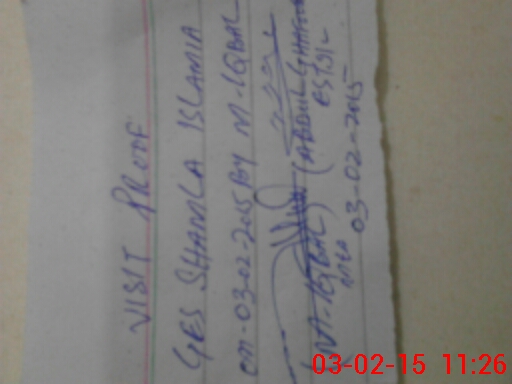 VISIT PROOF
GES SHAMLA ISLAMIA
on-03-02-2015 By M-IQBAL
(M-IQBAL) (ABDUL GHAFOO
03-02-2015
03-02-15 11:26